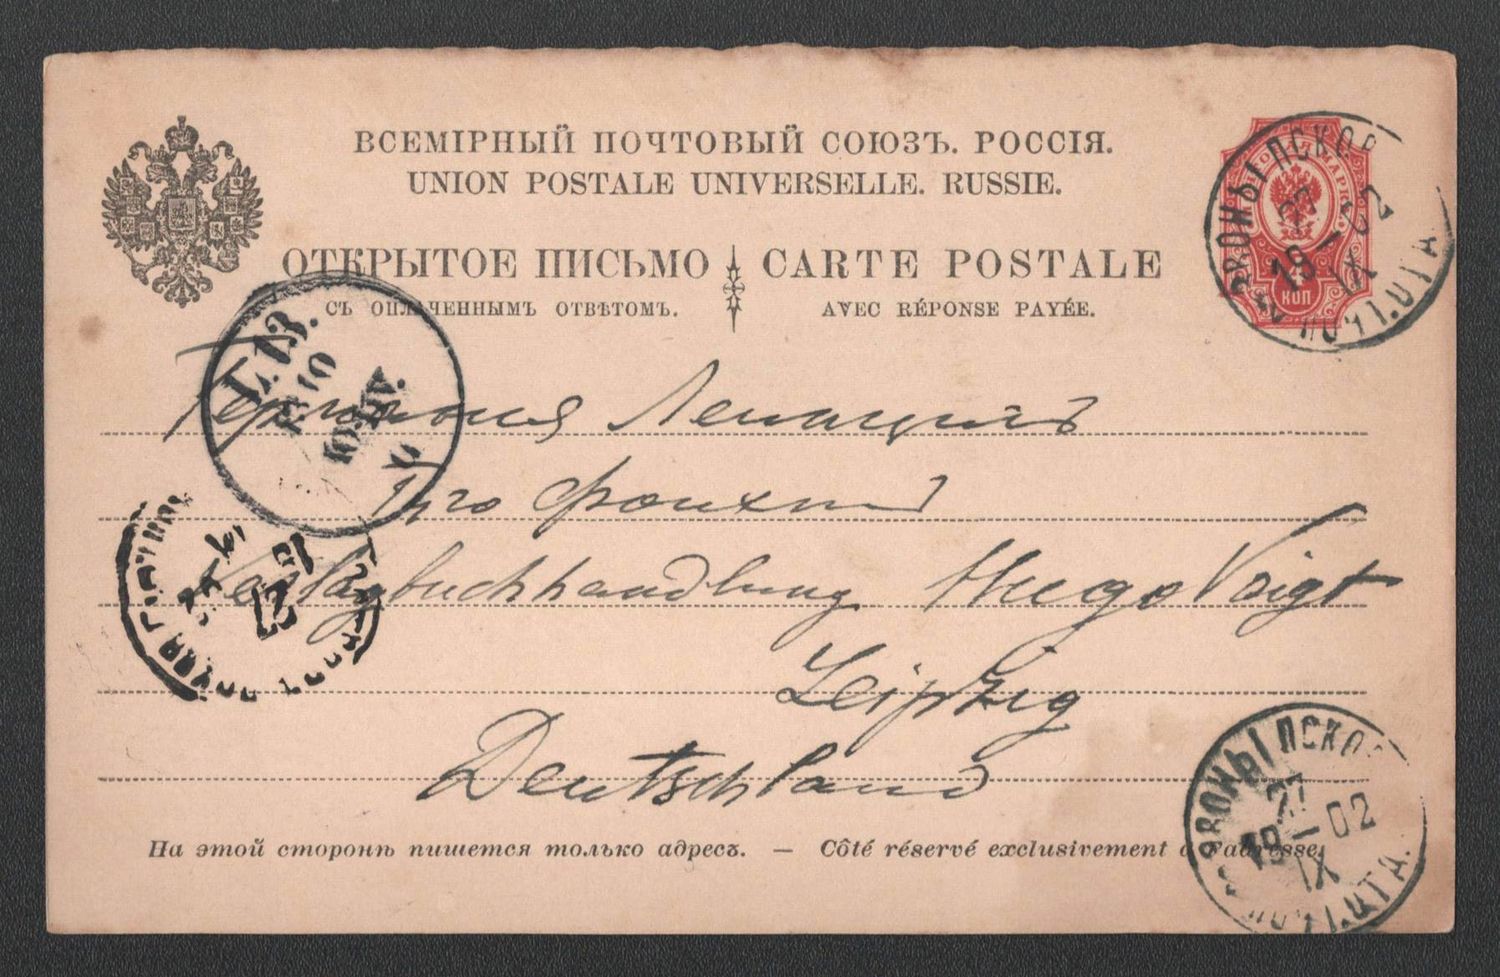 ВСЕМІРНЫЙ ПОЧТОВЫЙ СОЮЗЪ. РОССІЯ.
UNION POSTALE UNIVERSELLE. RUSSIE.
ОТКРЫТОЕ ПИСЬМО
CARTE POSTALE
СЪ ОПЛАЧЕННЫМЪ ОТВѢТОМЪ.
AVEC RÉPONSE PAYÉE.
КОП
ЗВОНЫ ПСКОВ
19 IX 02
L.13.
Германия Лейпцигъ
Verlagbuchhandlung Hugo Voigt
Leipzig
Deutschland
27
ЗВОНЫ ПСКО
27
19 — 02
IX
На этой сторонѣ пишется только адресъ. — Côté réservé exclusivement à l'adresse.